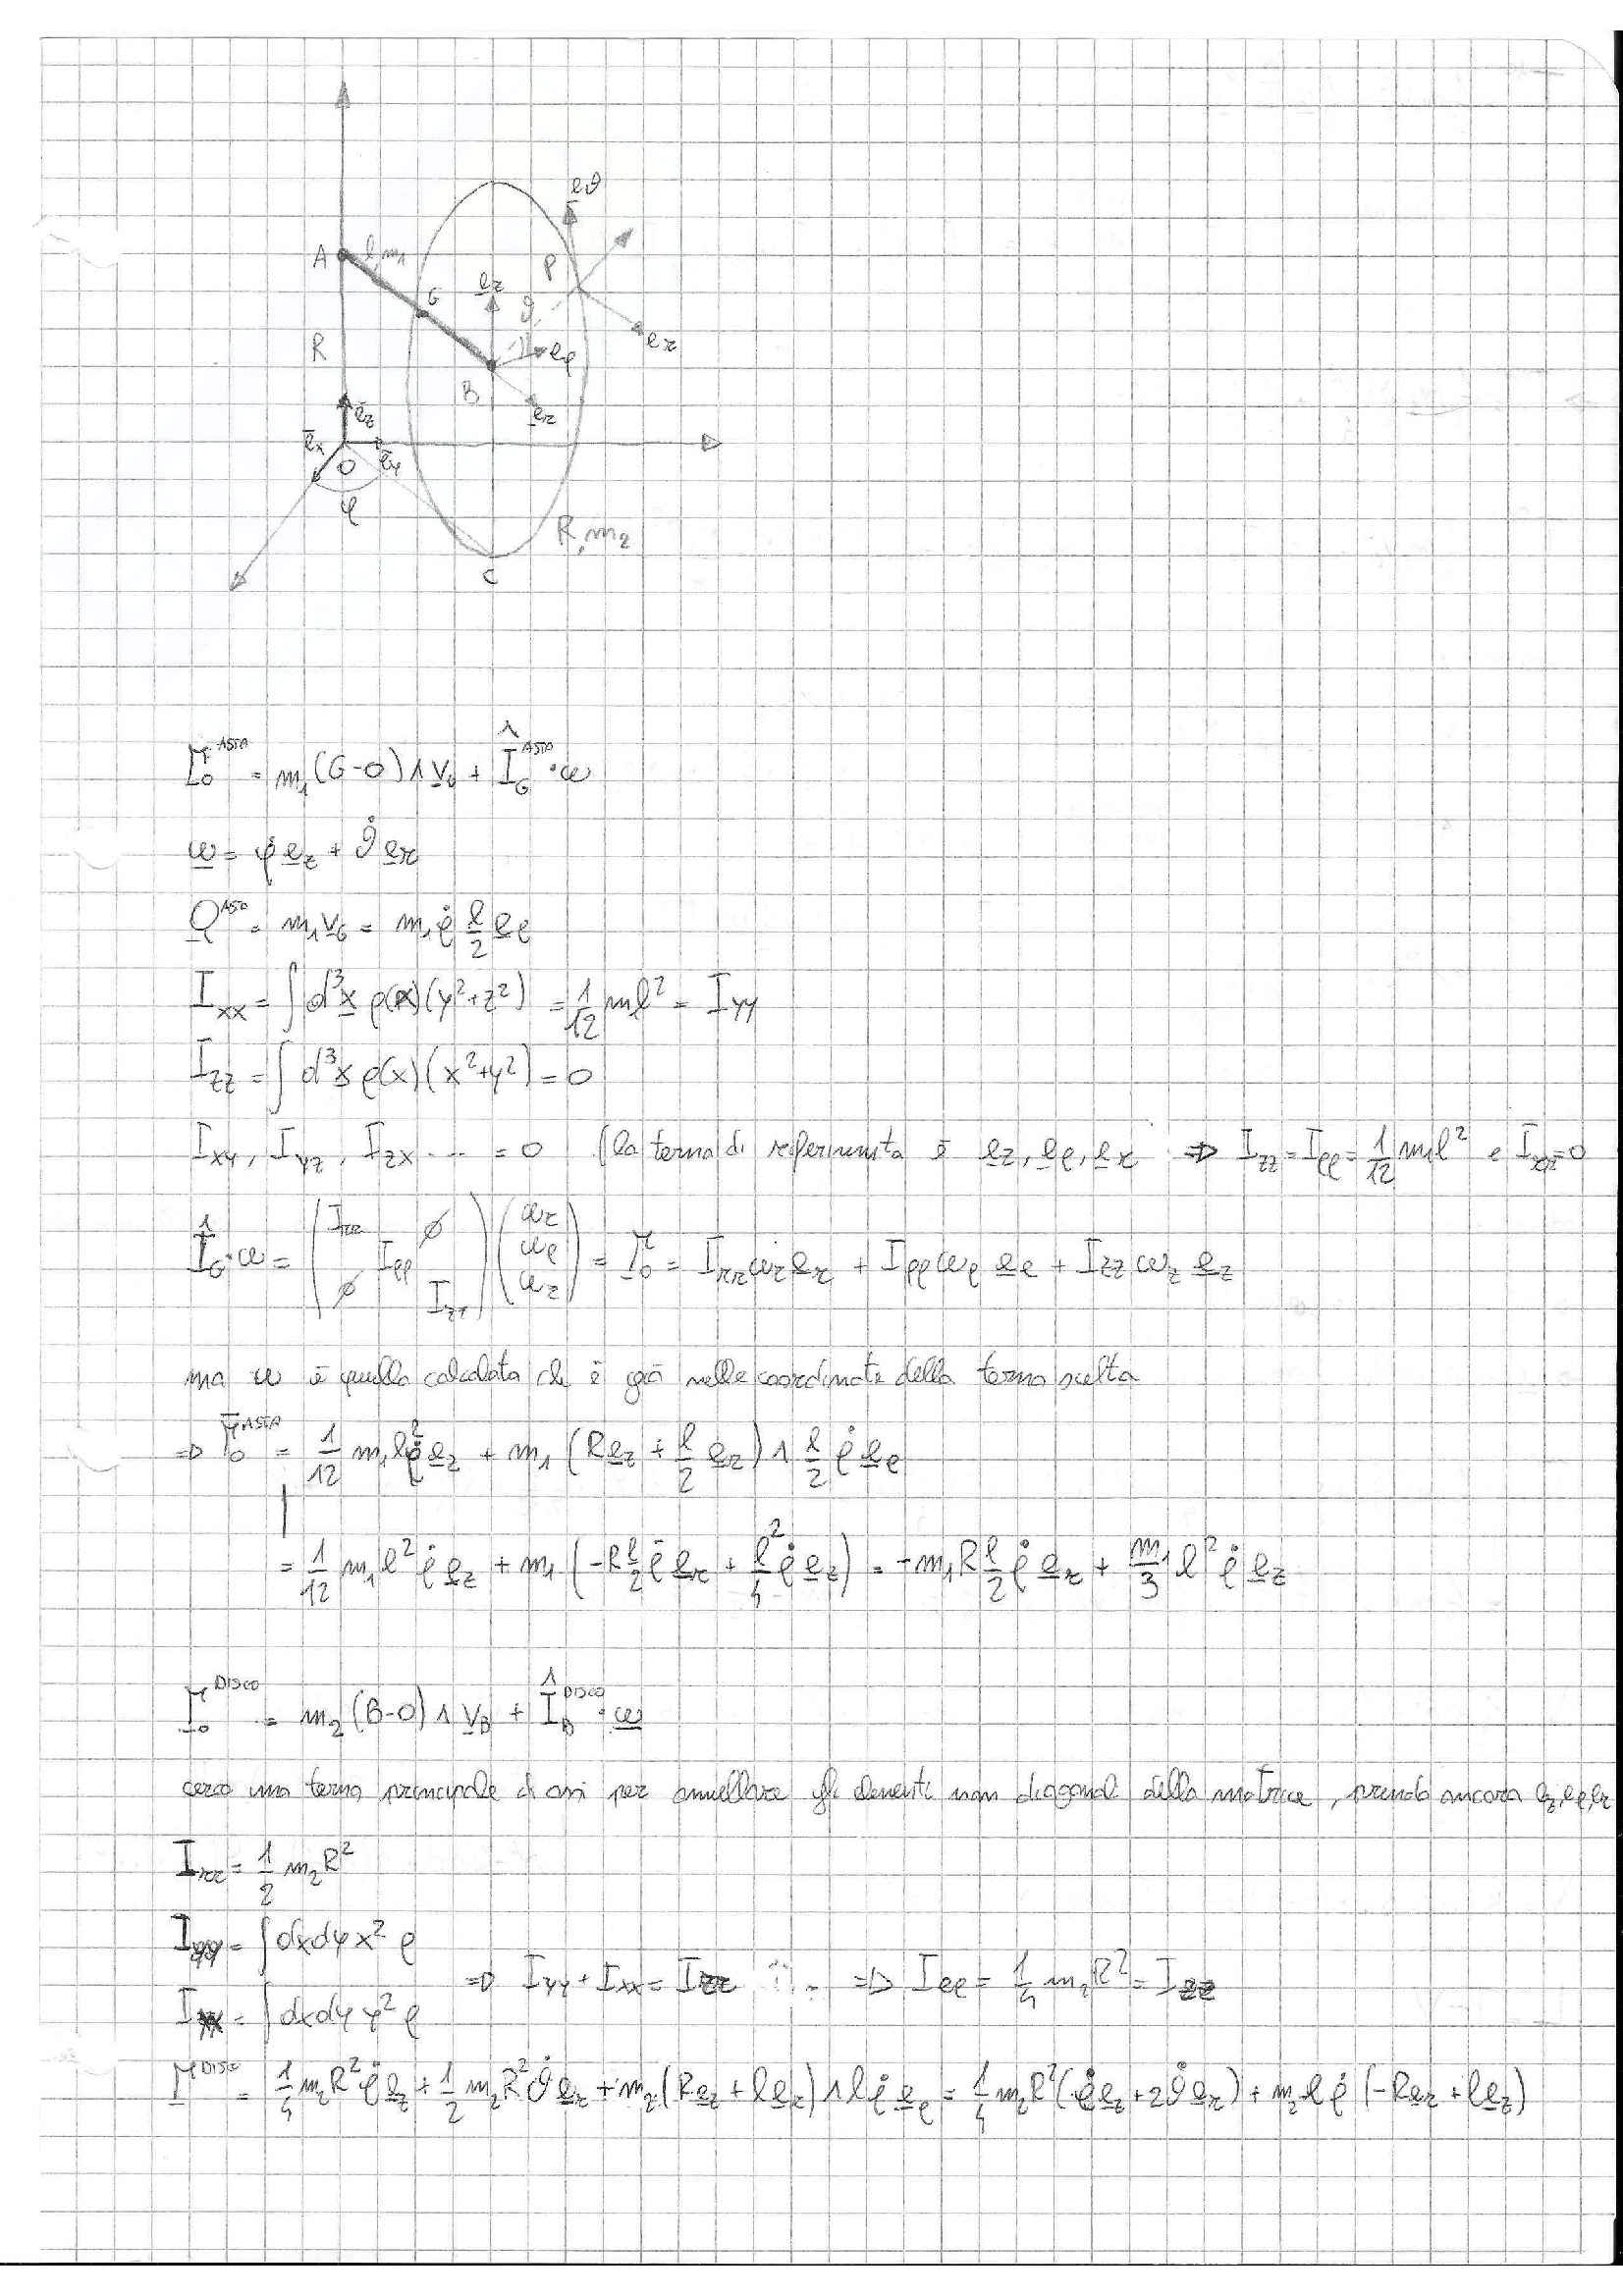 e_ϑ
A l, m₁
P
G e_z ϑ
R e_φ e_r
B e_r
e_z
e_x O e_y
φ
R, m₂
C
Γ_O^ASTA = m₁(G-O) ∧ v_G + Î_G^ASTA · ω
ω = φ̇ e_z + ϑ̇ e_r
Q^ASTA = m₁ v_G = m₁ φ̇ l/2 e_φ
I_xx = ∫ d³x ρ(x)(y²+z²) = 1/12 ml² = I_yy
I_zz = ∫ d³x ρ(x)(x²+y²) = 0
I_xy, I_yz, I_zx ... = 0 (la terna di riferimento è e_z, e_φ, e_r => I_zz = I_φφ = 1/12 m₁l² e I_rr = 0
Î_G·ω = (I_rr ∅ I_φφ ∅ I_zz)(ω_r ω_φ ω_z) = Γ_O = I_rr ω_r e_r + I_φφ ω_φ e_φ + I_zz ω_z e_z
ma ω è quella calcolata che è già nelle coordinate della terna scelta
=> Γ_O^ASTA = 1/12 m₁l²φ̇ e_z + m₁ (R e_z + l/2 e_r) ∧ l/2 φ̇ e_φ
= 1/12 m₁l² φ̇ e_z + m₁ (-R l/2 φ̇ e_r + l²/4 φ̇ e_z) = -m₁R l/2 φ̇ e_r + m₁/3 l² φ̇ e_z
Γ_O^DISCO = m₂(B-O) ∧ v_B + Î_B^DISCO · ω
cerco una terna principale di assi per annullare gli elementi non diagonali della matrice, prendo ancora e_z, e_φ, e_r
I_rr = 1/2 m₂R²
I_yy = ∫dxdy x² ρ
=> I_yy + I_xx = I_zz => I_φφ = 1/4 m₂R² = I_zz
I_xx = ∫dxdy y² ρ
Γ^DISCO = 1/4 m₂R²φ̇ e_z + 1/2 m₂R²ϑ̇ e_r + m₂(R e_z + l e_r) ∧ l φ̇ e_φ = 1/4 m₂R²(φ̇ e_z + 2ϑ̇ e_r) + m₂ l φ̇ (-R e_r + l e_z)